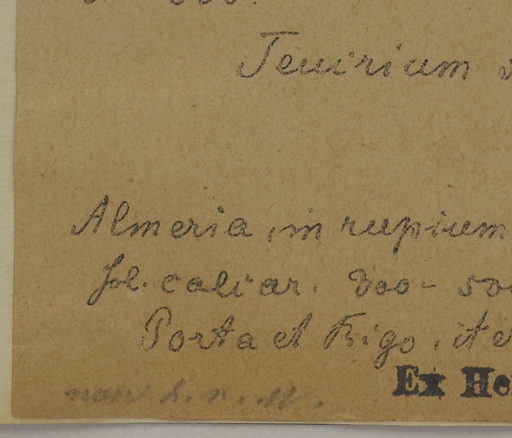 Teucrium
Almeria, in rupium
sol. calcar. 300 - 500
Porta et Rigo, it
Ex He